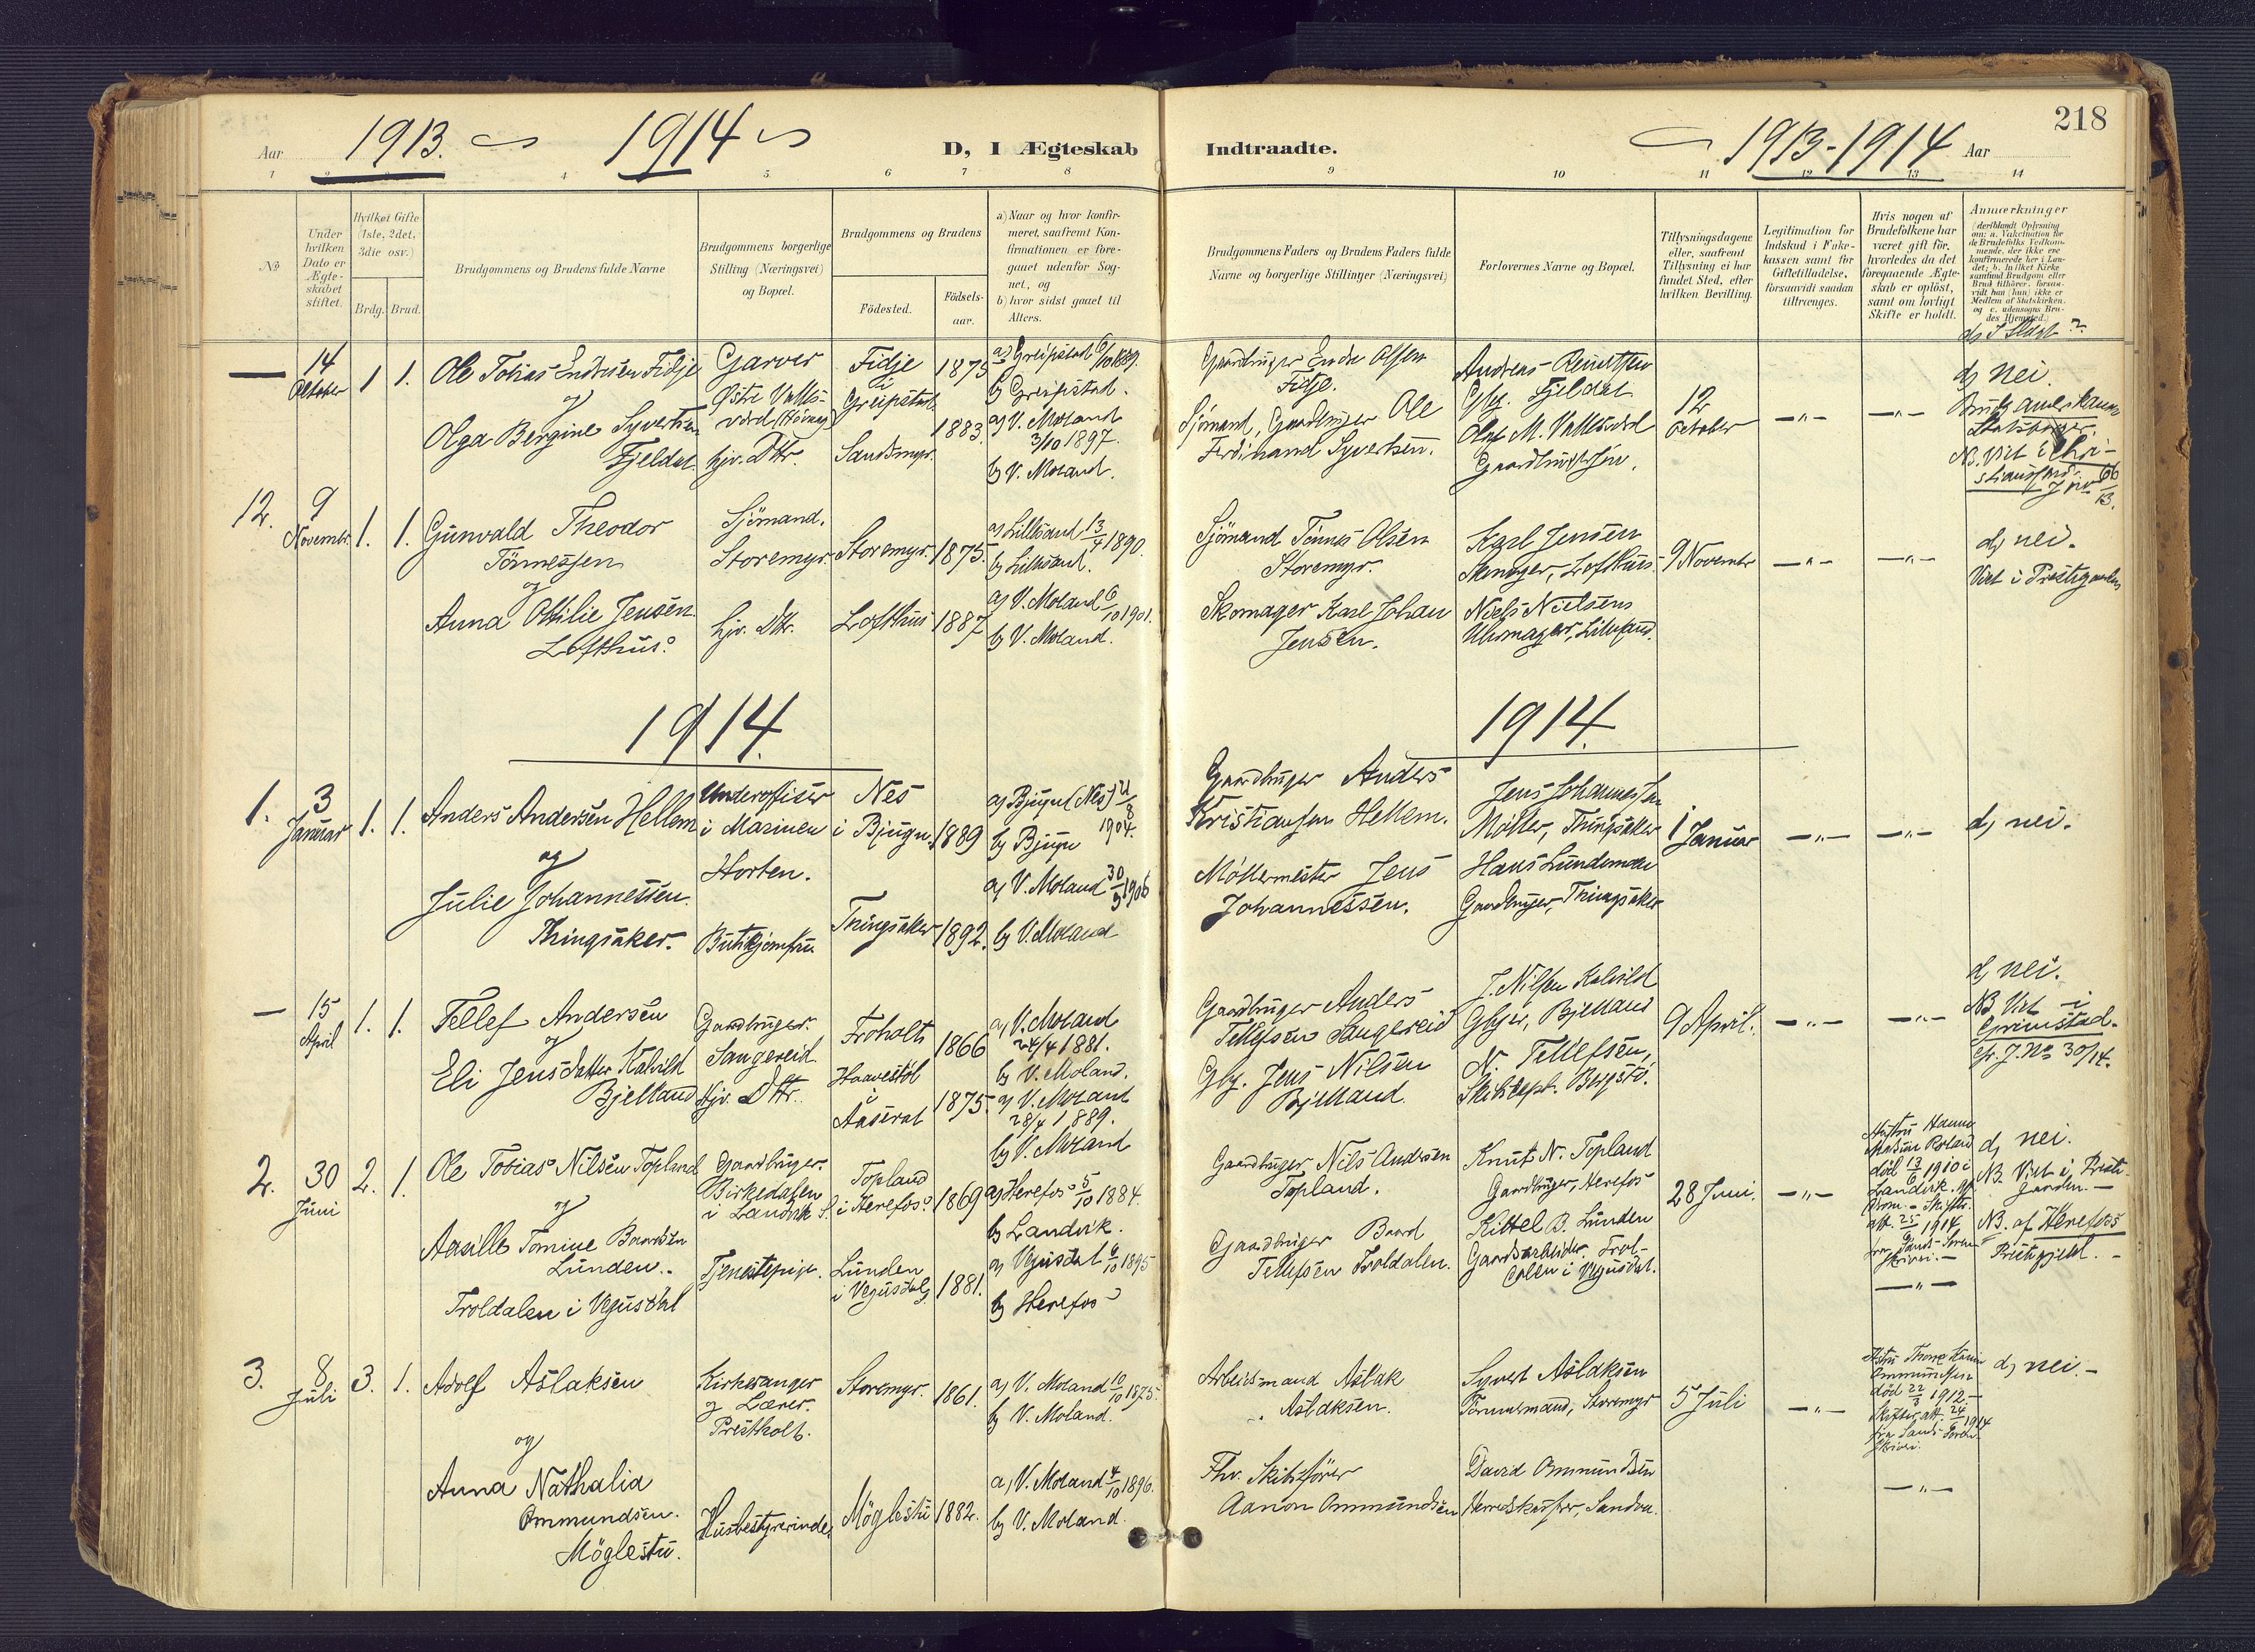 218
Aar 1913. 1914
D, I Ægteskab
Indtraadte.
1913-1914 Aar
1 2 3 4 5 6 7 8 9 10 11 12 13 14
No
Under
hvilken
Dato er
Ægte-
skabet
stiftet.
Hvilket Gifte
(1ste, 2det,
3die osv.)
Brdg. Brud.
Brudgommens og Brudens fulde Navne
Brudgommens borgerlige
Stilling (Næringsvei)
og Bopæl.
Brudgommens og Brudens
Fødested.
Fødsels-
aar.
a) Naar og hvor konfir-
meret, saafremt Kon-
firmationen er fore-
gaaet udenfor Sog-
net, og
b) hvor sidst gaaet til
Alters.
Brudgommens Faders og Brudens Faders fulde
Navne og borgerlige Stillinger (Næringsvei)
Forlovernes Navne og Bopæl.
Tillysningsdagene
eller, saafremt
Tillysning ei har
fundet Sted, efter
hvilken Bevilling.
Legitimation for
Indskud i Enke-
kassen samt for
Giftetilladelse,
forsaavidt saadan
tiltrænges.
Hvis nogen af
Brudefolkene har
været gift før,
hvorledes da det
foregaaende Ægte-
skab er opløst,
samt om lovligt
Skifte er holdt.
Anmærkninger
(deriblandt Oplysning
om: a. Vakcination for
de Brudefolks Vedkom-
mende, der ikke ere
konfirmerede her i Lan-
det; b. hvilket Kirke-
samfund Brudgom eller
Brud tilhører, forsaa-
vidt han (hun) ikke er
Medlem af Statskirken.
og c. udensogns Bru-
des Hjemsted.)
d) I Slægt?
14
October
1 1.
Ole Tobias Endresen Fidje
og
Olga Bergine Syvertsen
Fjeldal
Garver
Østre Valles-
værd (Høvaag)
hjv. Dttr.
Fidje
i
Greipstad
Sandsmyr.
1875
1883.
a) Greipstad 6/10 1889.
b) Greipstad.
a) V. Moland
3/10 1897.
b) V. Moland.
Gaardbruger Endre Olsen
Fidje.
Sjømand, Gaardbruger Ole
Ferdinand Syvertsen.
Andreas
Gbr. Fjeldal
Olaf M. Vallesverd
Gaardbruger
12
October
— " —
— " —
d) nei.
Brudg. amerikansk
Statsborger.
NB. Viet i Chri-
stianssand
J. nr 66/13.
12. 9
Novembr.
1. 1.
Gunvald Theodor
Tønnessen
og
Anna Otilie Jensen
Lofthus.
Sjømand.
Storemyr.
hjv. Dttr.
Storemyr.
Lofthus
1875.
1887
a) Lillesand 13/4 1890.
b) Lillesand.
a) V. Moland 6/10 1901.
b) V. Moland.
Sjømand Tønnes Olsen
Storemyr.
Skomager Karl Johan
Jensen.
Karl Jensen
Skomager, Lofthus.
Niels Nielsen
Uhrmager, Lillesand.
9 Novembr
— " —
— " —
d) nei.
Viet i Prestegaarden
1914.
1914.
1. 3
Januar
1. 1.
Anders Andersen Hellem
og
Julie Johannessen
Thingsaker.
Underofficer
i Marinen
Horten.
Butikjomfru
Nes
i Bjugn.
Thingsaker
1889
1892.
a) Bjugn (Nes) 21/8 1904.
b) Bjugn
a) V. Moland 30/9 1906
b) V. Moland
Gaardbruger Anders
Kristiansen Hellem.
Møllermester Jens
Johannessen.
Jens Johannessen
Møller, Thingsaker
Hans Lundeman
Gaardbruger, Thingsaker
1 Januar
— " —
— " —
d) nei.
15
April
1. 1.
Tellef Andersen
og
Eli Jensdatter Kalvild
Bjelland
Gaardbruger.
Sangereid
Hjv. Dttr.
Froholt
Haavestøl
i
Aaseral
1866
1875.
a) V. Moland
24/4 1881.
b) V. Moland.
a) V. Moland
28/4 1889.
b) V. Moland
Gaardbruger Anders
Tellefsen Sangereid
Gbr. Jens Nilsen
Bjelland.
J. Nilsen Kalvild
Gbger, Bjelland
N. Tellefsen,
Skibskapt. Bergstø.
9 April.
— " —
— " —
d) nei.
NB Viet i
Grimstad.
cfr. J. No 30/14.
2. 30
Juni
2. 1.
Ole Tobias Nilsen Topland
og
Aasille Tomine Baardsen
Lunden.
Troldalen i Vegusdal
Gaardbruger.
Birkedalen
i Landvik S.
Tjenestepige.
Topland
i Herefos.
Lunden
i Vegusdal S.
1869
1881.
a) Herefos 5/10 1884.
b) Landvik.
a) Vegusdal 6/10 1895
b) Herefos
Gaardbruger Nils Andersen
Topland.
Gaardbruger Baard
Tellefsen Troldalen.
Knut N. Topland
Gaardbruger, Herefos
Kittel B. Lunden
Gaardsarbeider, Trol-
dalen i Vegusdal.
28 Juni.
— " —
Hustru Hanne
død 13/6 1910 i
Landvik.
Skifte-
att. 25/6 1914,
fra Sands Soren-
skriveri. —
— " —
d) nei.
NB. Viet i Preste-
gaarden. —
NB. af Herefos
Prestegjeld. —
3. 8
Juli
3. 1.
Adolf Aslaksen
og
Anna Nathalia
Ommundsen.
Møglestu.
Kirkesanger
og Lærer.
Prestholt.
Husbestyrerinde
Storemyr.
Møglestu
1861.
1882.
a) V. Moland 10/10 1875.
b) V. Moland.
a) V. Moland 4/10 1896.
b) V. Moland.
Arbeidsmand Aslak
Aslaksen.
Fhv. Skibsfører
Aanon Ommundsen
Syvert Aslaksen
Tømmermand, Storemyr
David Ommundsen
Herredskasserer, Sandva.
5 Juli
— " —
Hustru Thone Karine
Ommundsen
død 22/8 1912.—
Skifteatt. 24/6 1914
fra Sands Soren-
skriveri.
— " —
d) nei.—